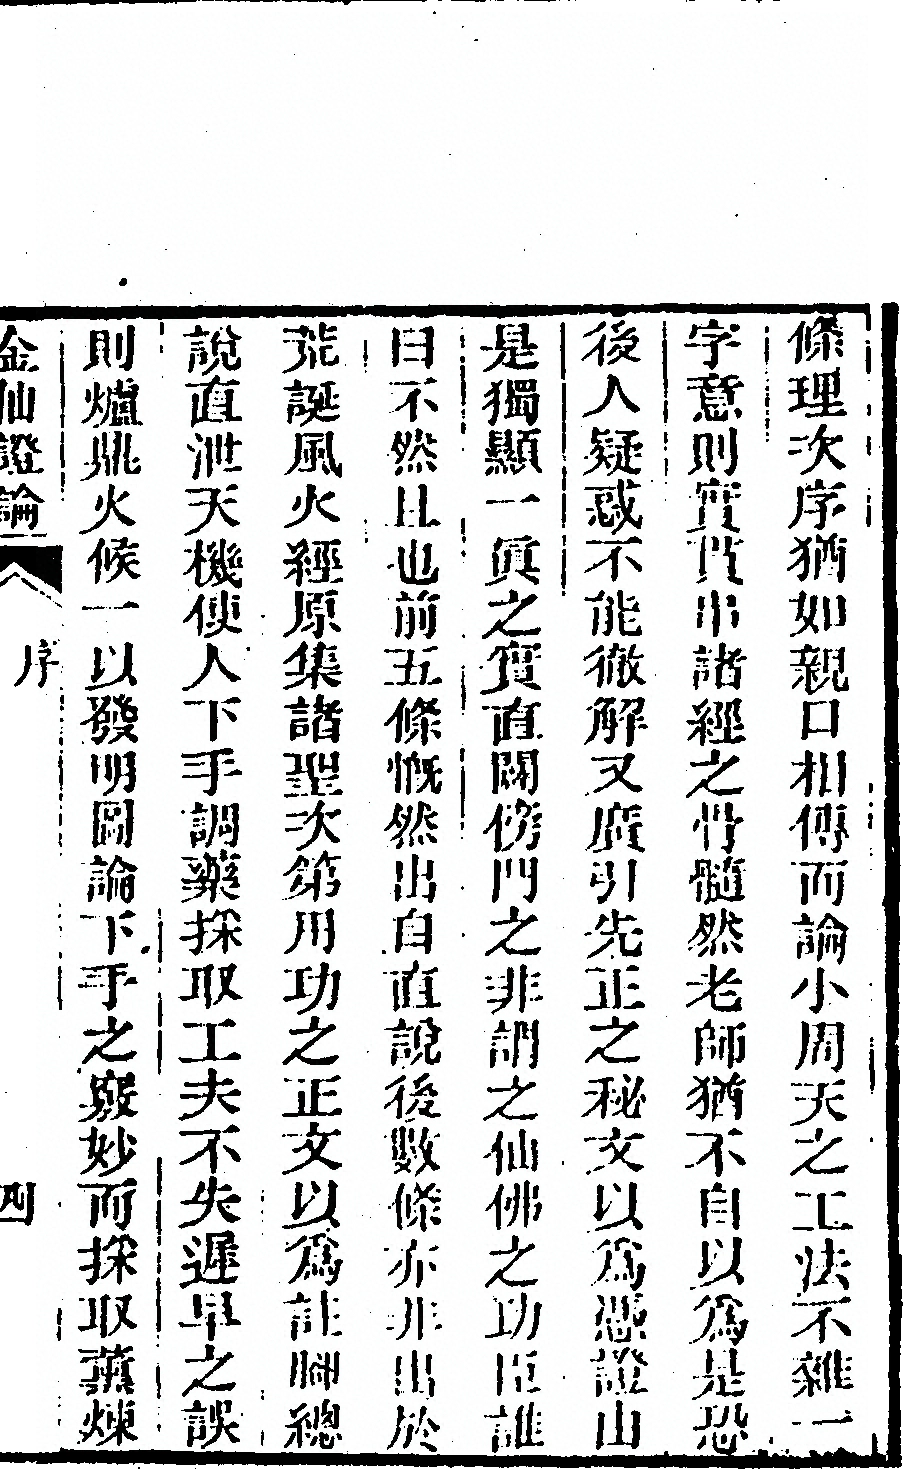 條理次序猶如親口相傳而論小周天之工法不雜一
字意則實貫串諸經之骨髓然老師猶不自以爲是恐
後人疑惑不能徹解又廣引先正之秘文以爲憑證山
是獨顯一眞之實直闢傍門之非謂之仙佛之功臣誰
曰不然且也前五條慨然出自直說後數條亦非出於
荒誕風火經原集諸聖次第用功之正文以爲註腳總
說直泄天機使人下手調藥採取工夫不失遲早之誤
則爐鼎火候一以發明圖論下手之竅妙而採取薰煉
金仙證論
序
四